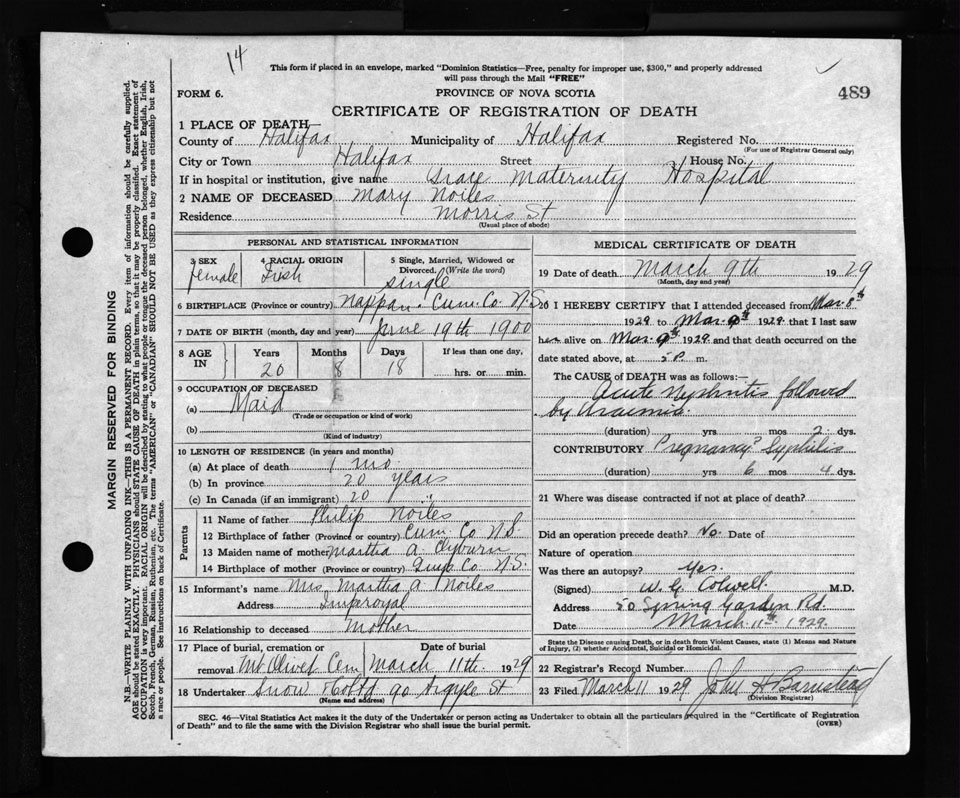 14
This form if placed in an envelope, marked "Dominion Statistics—Free, penalty for improper use, $300," and properly addressed
will pass through the Mail "FREE"
489
FORM 6.
PROVINCE OF NOVA SCOTIA
CERTIFICATE OF REGISTRATION OF DEATH
1 PLACE OF DEATH—
County of Halifax Municipality of Halifax Registered No.
(For use of Registrar General only)
City or Town Halifax Street House No.
If in hospital or institution, give name Grace Maternity Hospital
2 NAME OF DECEASED Mary Noiles
Residence Morris St
(Usual place of abode)
PERSONAL AND STATISTICAL INFORMATION
3 SEX Female
4 RACIAL ORIGIN Irish
5 Single, Married, Widowed or Divorced. (Write the word) single
6 BIRTHPLACE (Province or country) Nappan. Cum. Co. N.S.
7 DATE OF BIRTH (month, day and year) June 19th 1900
8 AGE IN Years 20 Months 8 Days 18 If less than one day, hrs. or min.
9 OCCUPATION OF DECEASED
(a) Maid
(Trade or occupation or kind of work)
(b)
(Kind of industry)
10 LENGTH OF RESIDENCE (in years and months)
(a) At place of death 1 mo
(b) In province 20 years
(c) In Canada (if an immigrant) 20 "
Parents
11 Name of father Philip Noiles
12 Birthplace of father (Province or country) Cum. Co N.S.
13 Maiden name of mother Martha A.
14 Birthplace of mother (Province or country) Co N.S.
15 Informant's name Mrs Martha A. Noiles
Address
16 Relationship to deceased Mother
17 Place of burial, cremation or removal Mt Olivet Cem Date of burial March 11th 1929
18 Undertaker Snow & Co Ltd 90 Argyle St
(Name and address)
MEDICAL CERTIFICATE OF DEATH
19 Date of death March 9th 1929
(Month, day and year)
20 I HEREBY CERTIFY that I attended deceased from Mar. 8th
1929 to Mar. 9th 1929 that I last saw
her alive on Mar. 9th 1929 and that death occurred on the
date stated above, at 5 P. m.
The CAUSE OF DEATH was as follows:—
Acute Nephritis followed
by Uraemia.
(duration) yrs mos 2 dys.
CONTRIBUTORY Pregnancy? Syphilis
(duration) yrs 6 mos 4 dys.
21 Where was disease contracted if not at place of death?
Did an operation precede death? No. Date of
Nature of operation
Was there an autopsy? Yes.
(Signed) W. G. Colwell. M.D.
Address 50 Spring Garden Rd.
Date March 11th 1929.
State the Disease causing Death, or in death from Violent Causes, state (1) Means and Nature
of Injury, (2) whether Accidental, Suicidal or Homicidal.
22 Registrar's Record Number
23 Filed March 11 1929 John H Barnstead
(Division Registrar)
SEC. 46—Vital Statistics Act makes it the duty of the Undertaker or person acting as Undertaker to obtain all the particulars required in the "Certificate of Registration
of Death" and to file the same with the Division Registrar who shall issue the burial permit.
(OVER)
MARGIN RESERVED FOR BINDING
N.B.—WRITE PLAINLY WITH UNFADING INK—THIS IS A PERMANENT RECORD. Every item of information should be carefully supplied.
AGE should be stated EXACTLY. PHYSICIANS should STATE CAUSE OF DEATH in plain terms, so that it may be properly classified. Exact statement of
OCCUPATION is very important. RACIAL ORIGIN will be described by stating to what people or tongue the deceased person belonged, whether English, Irish,
Scotch, French, German, Russian, Ruthenian, etc. The terms "AMERICAN" or "CANADIAN" SHOULD NOT BE USED as they express citizenship but not
a race or people. See instructions on back of Certificate.